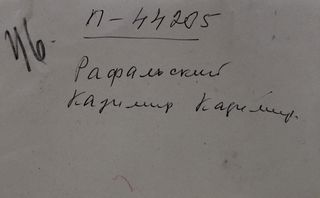 П-44205
Рафальский
Казимир Казимир.